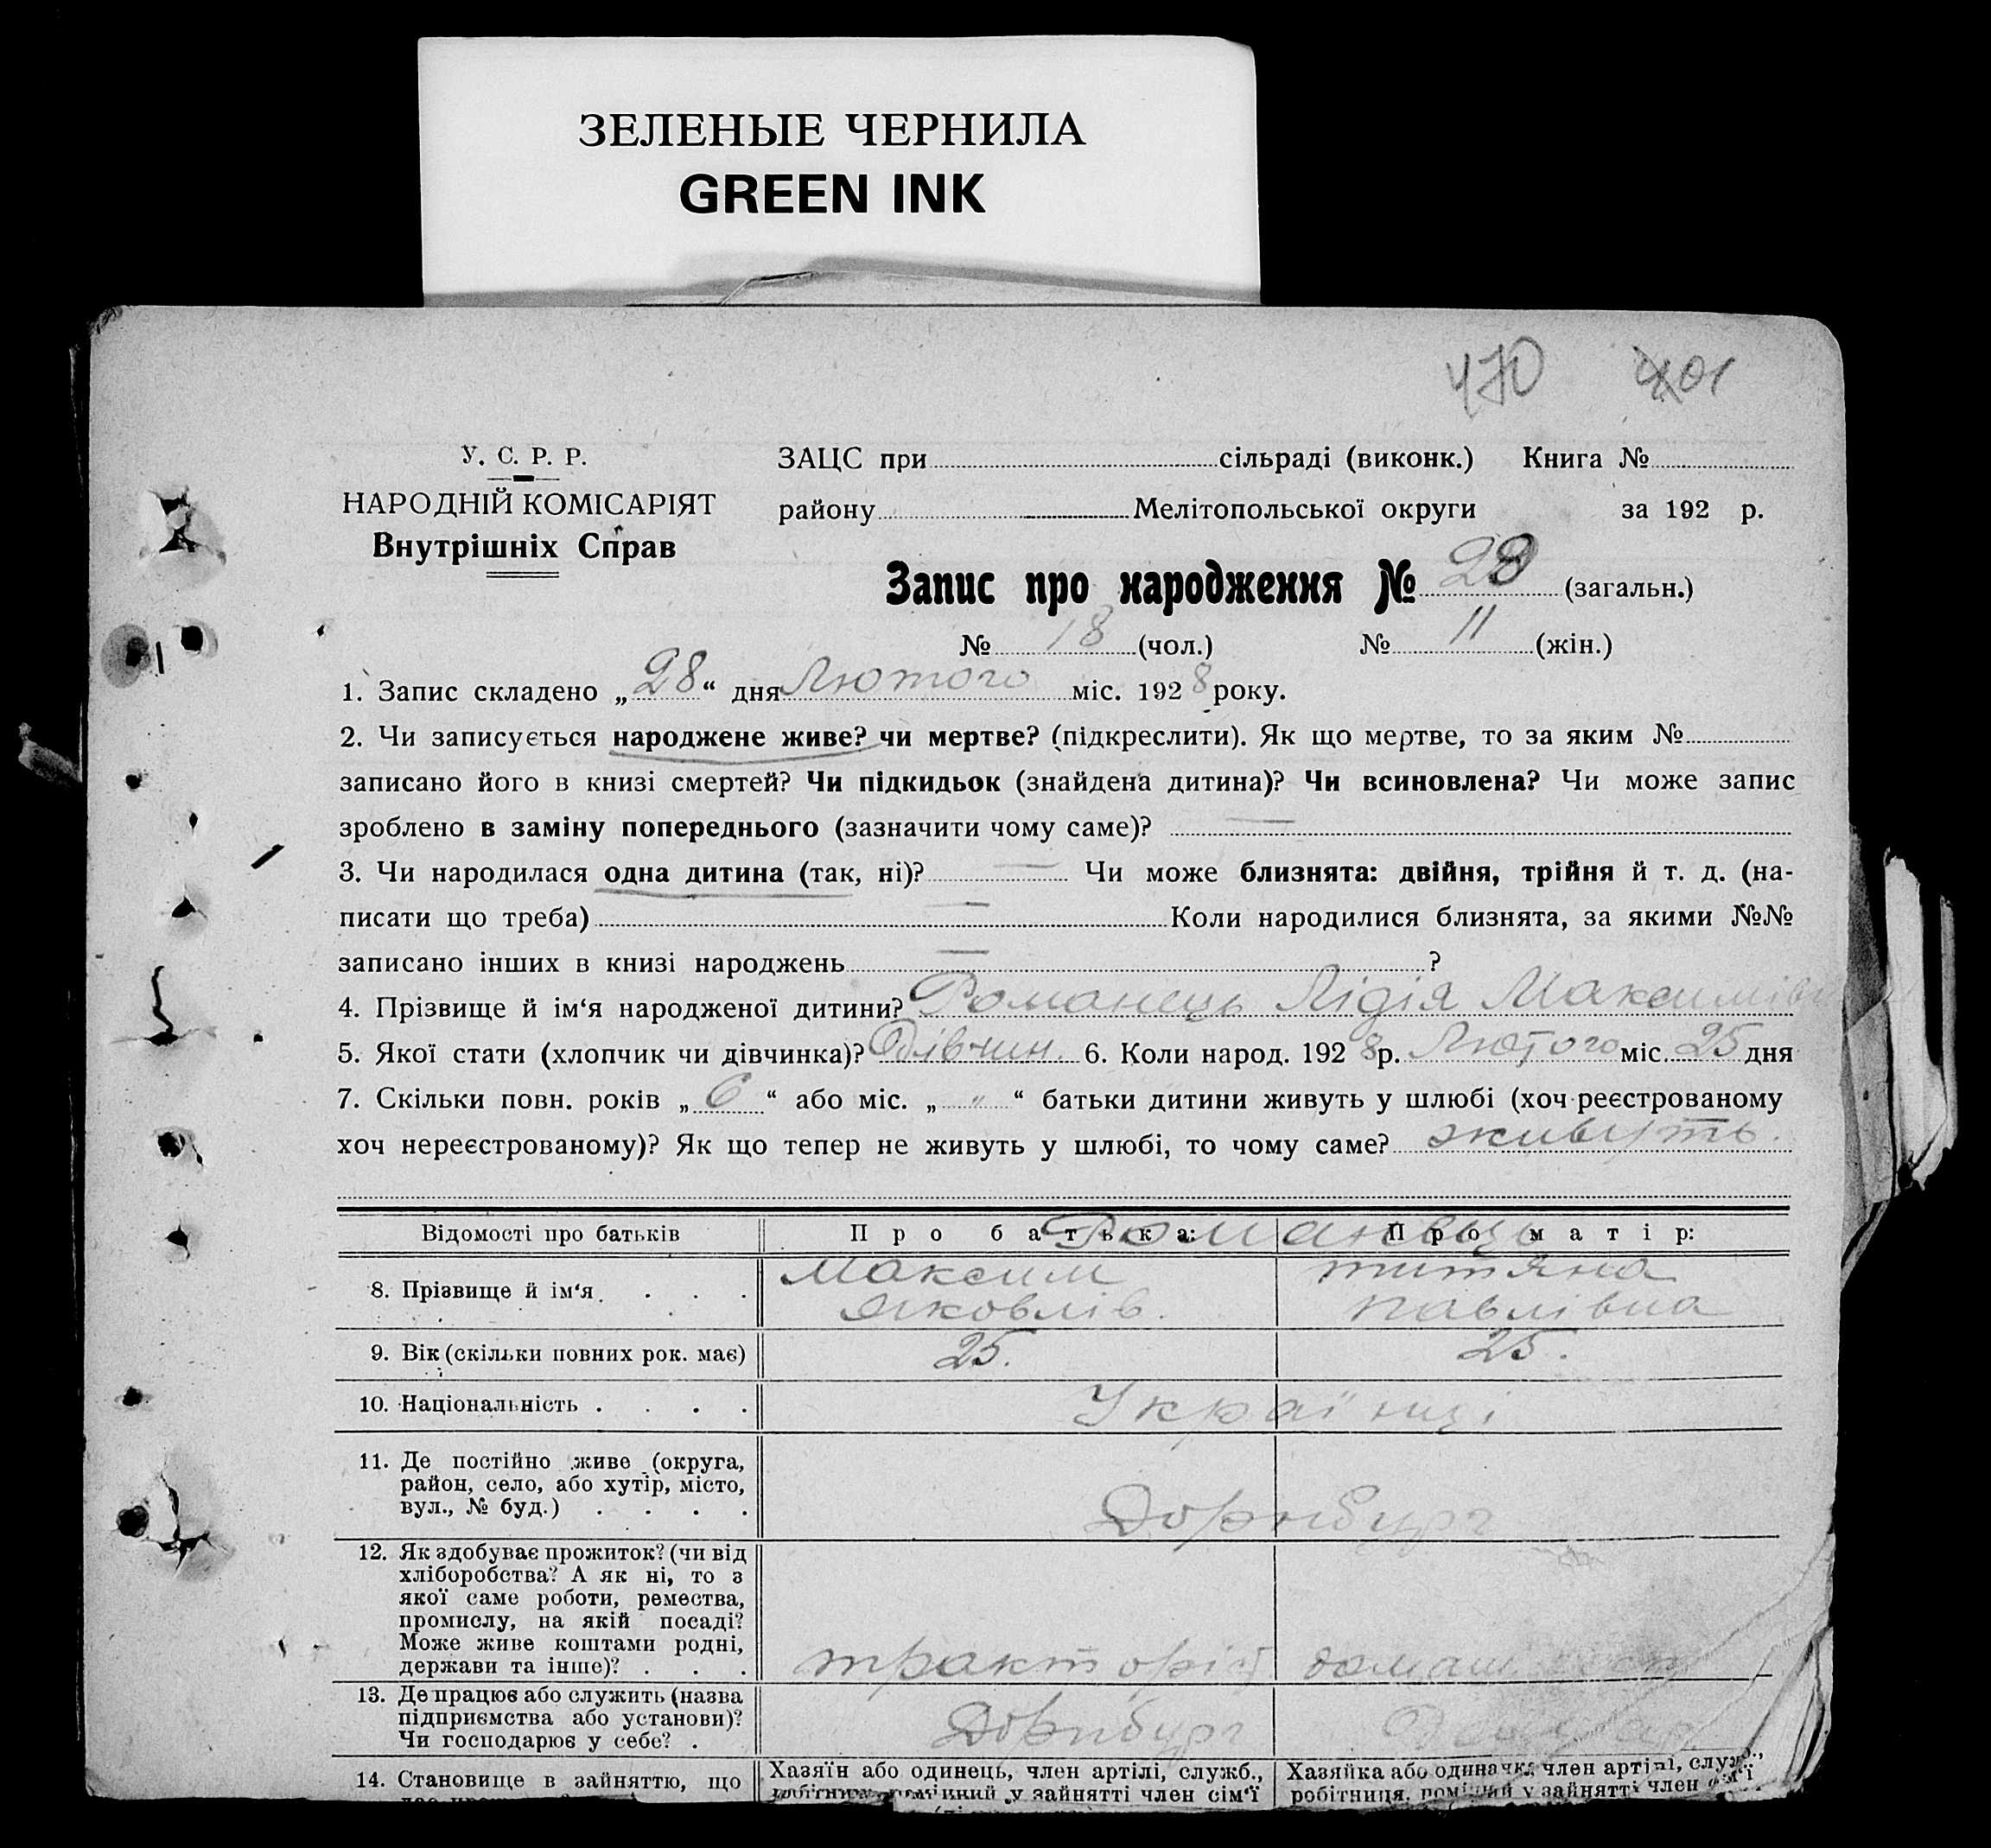 ЗЕЛЕНЫЕ ЧЕРНИЛА
GREEN INK
470 401
У. С. Р. Р.
НАРОДНІЙ КОМІСАРІЯТ
Внутрішніх Справ
ЗАЦС при сільраді (виконк.) Книга №
району Мелітопольської округи за 192 р.
Запис про народження № 28 (загальн.)
№ 18 (чол.) № 11 (жін.)
1. Запис складено „28“ дня Лютого міс. 1928 року.
2. Чи записується народжене живе? чи мертве? (підкреслити). Як що мертве, то за яким №
записано його в книзі смертей? Чи підкидьок (знайдена дитина)? Чи всиновлена? Чи може запис
зроблено в заміну попереднього (зазначити чому саме)? —
3. Чи народилася одна дитина (так, ні)? — Чи може близнята: двійня, трійня й т. д. (на-
писати що треба) — Коли народилися близнята, за якими №№
записано інших в книзі народжень — ?
4. Прізвище й ім‘я народженої дитини? Романець Лідія Максимівна
5. Якої стати (хлопчик чи дівчинка)? Дівчин. 6. Коли народ. 1928 р. Лютого міс. 25 дня
7. Скільки повн. років „6“ або міс. „ " “ батьки дитини живуть у шлюбі (хоч реєстрованому
хоч нереєстрованому)? Як що тепер не живуть у шлюбі, то чому саме? живуть.
Відомості про батьків Про батька: Про матір:
Романець
8. Прізвище й ім‘я . . . . Максим Яковлів. титяна Павлівна
9. Вік (скільки повних рок. має) 25. 25.
10. Національність . . . . Українці
11. Де постійно живе (округа,
район, село, або хутір, місто,
вул., № буд.) . . . . Дорнбург
12. Як здобуває прожиток? (чи від
хліборобства? А як ні, то з
якої саме роботи, ремества,
промислу, на якій посаді?
Може живе коштами родні,
держави та інше)? . . . тракторіст
13. Де працює або служить (назва
підприємства або установи)?
Чи господарює у себе? . Дорнбург
14. Становище в зайняттю, що
Хазяїн або одинець, член артілі, служб.,
робітник, помішний у зайнятті член сім‘ї
Хазяйка або одиначка член артілі, служб.,
робітниця, помішний у зайнятті член сім‘ї